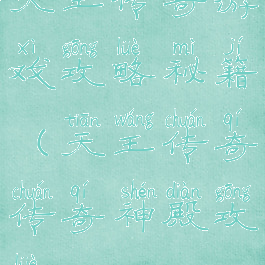 天王传奇游
xì gōng lüè mì jí
戏攻略秘籍
tiān wáng chuán qí
（天王传奇
chuán qí shén diàn gōng
传奇神殿攻
lüè